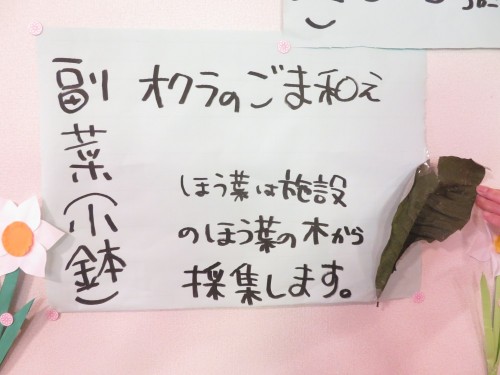 副菜(小鉢)
オクラのごま和え
ほう葉は施設
のほう葉の木から
採集します。